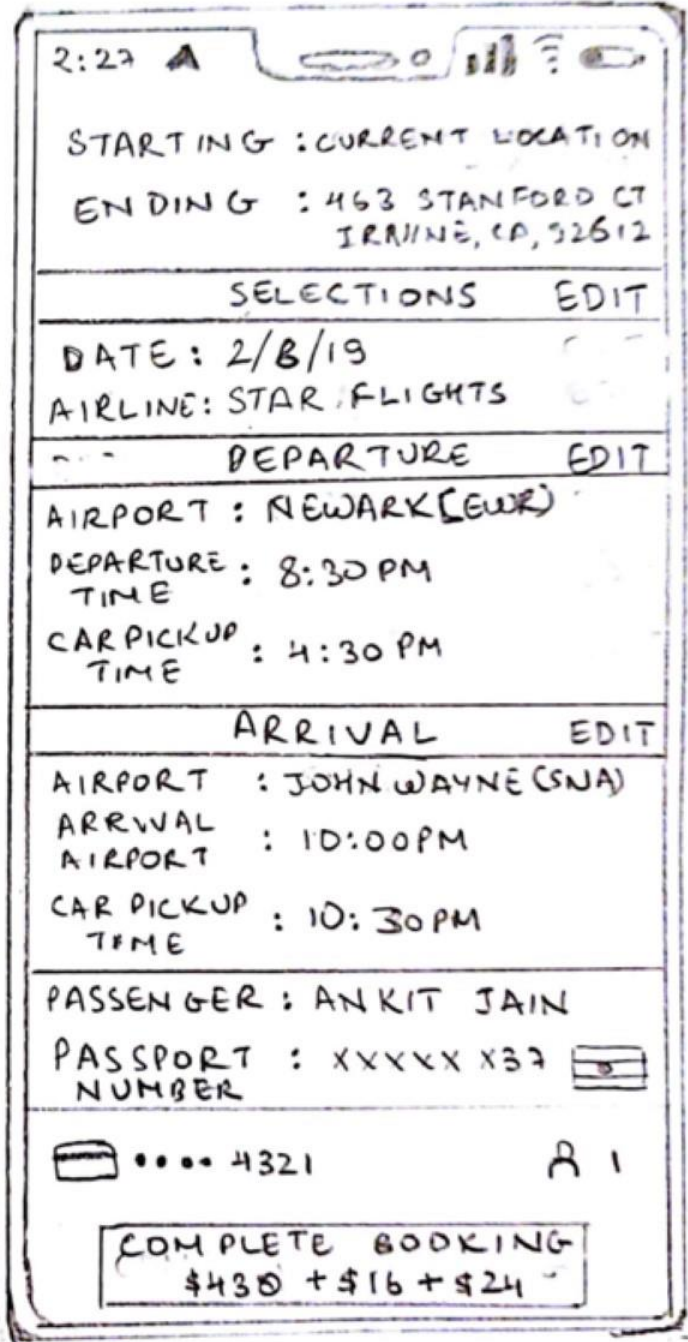 2:27
STARTING : CURRENT LOCATION
ENDING : 463 STANFORD CT
IRVINE, CA, 92612
SELECTIONS EDIT
DATE: 2/8/19
AIRLINE: STAR FLIGHTS
DEPARTURE EDIT
AIRPORT : NEWARK (EWR)
DEPARTURE TIME : 8:30 PM
CAR PICKUP TIME : 4:30 PM
ARRIVAL EDIT
AIRPORT : JOHN WAYNE (SNA)
ARRIVAL AIRPORT : 10:00PM
CAR PICKUP TIME : 10:30PM
PASSENGER : ANKIT JAIN
PASSPORT NUMBER : XXXXX X37
•••• 4321 1
COMPLETE BOOKING
$430 + $16 + $24